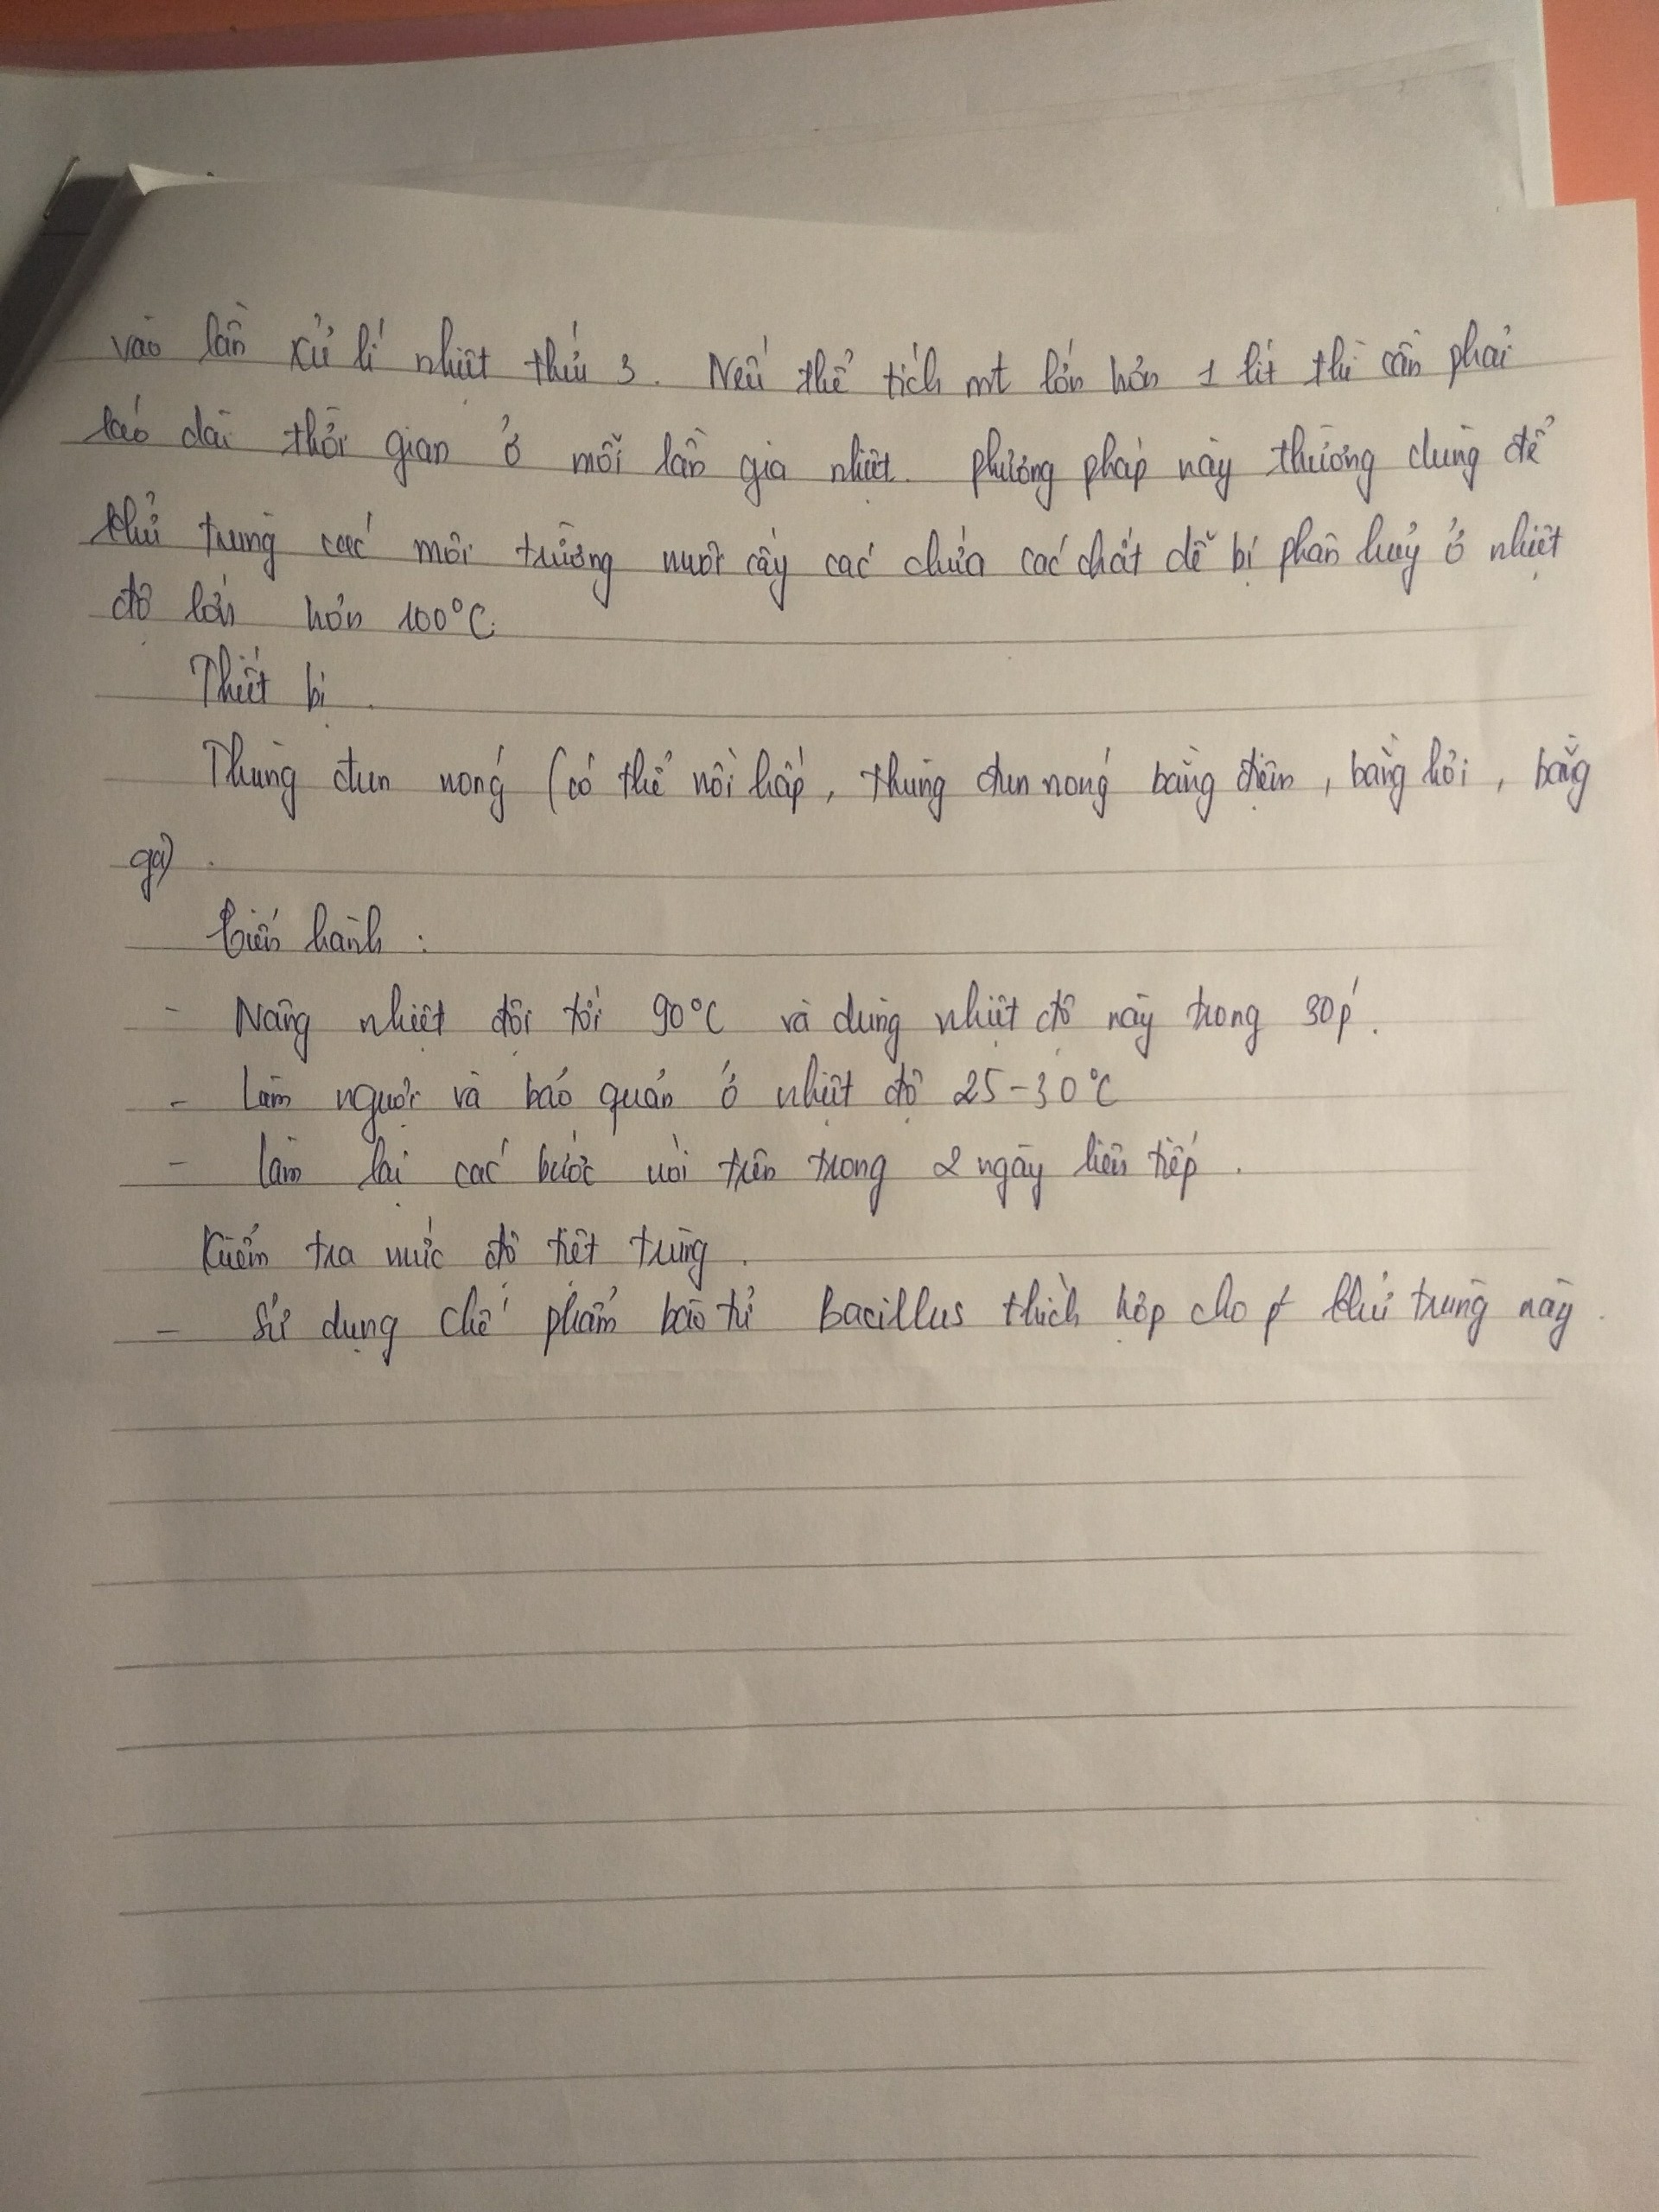 vào lần xử lí nhiệt thứ 3. Nếu thể tích mt lớn hơn 1 lít thì cần phải
kéo dài thời gian ở mỗi lần gia nhiệt. phương pháp này thường dùng để
khử trùng các môi trường nuôi cấy các chứa các chất dễ bị phân huỷ ở nhiệt
độ lớn hơn 100°C.
Thiết bị.
Thùng đun nóng (có thể nồi hấp, thùng đun nóng bằng điện, bằng hơi, bằng
ga).
Tiến hành:
- Nâng nhiệt đôi tới 90°C và dùng nhiệt độ này trong 30p'.
- Làm nguội và bảo quản ở nhiệt độ 25-30°C
- làm lại các bước nói trên trong 2 ngày liên tiếp.
Kiểm tra mức độ tiệt trùng.
- Sử dụng chế phẩm bào tử Bacillus thích hợp cho khử trùng này.